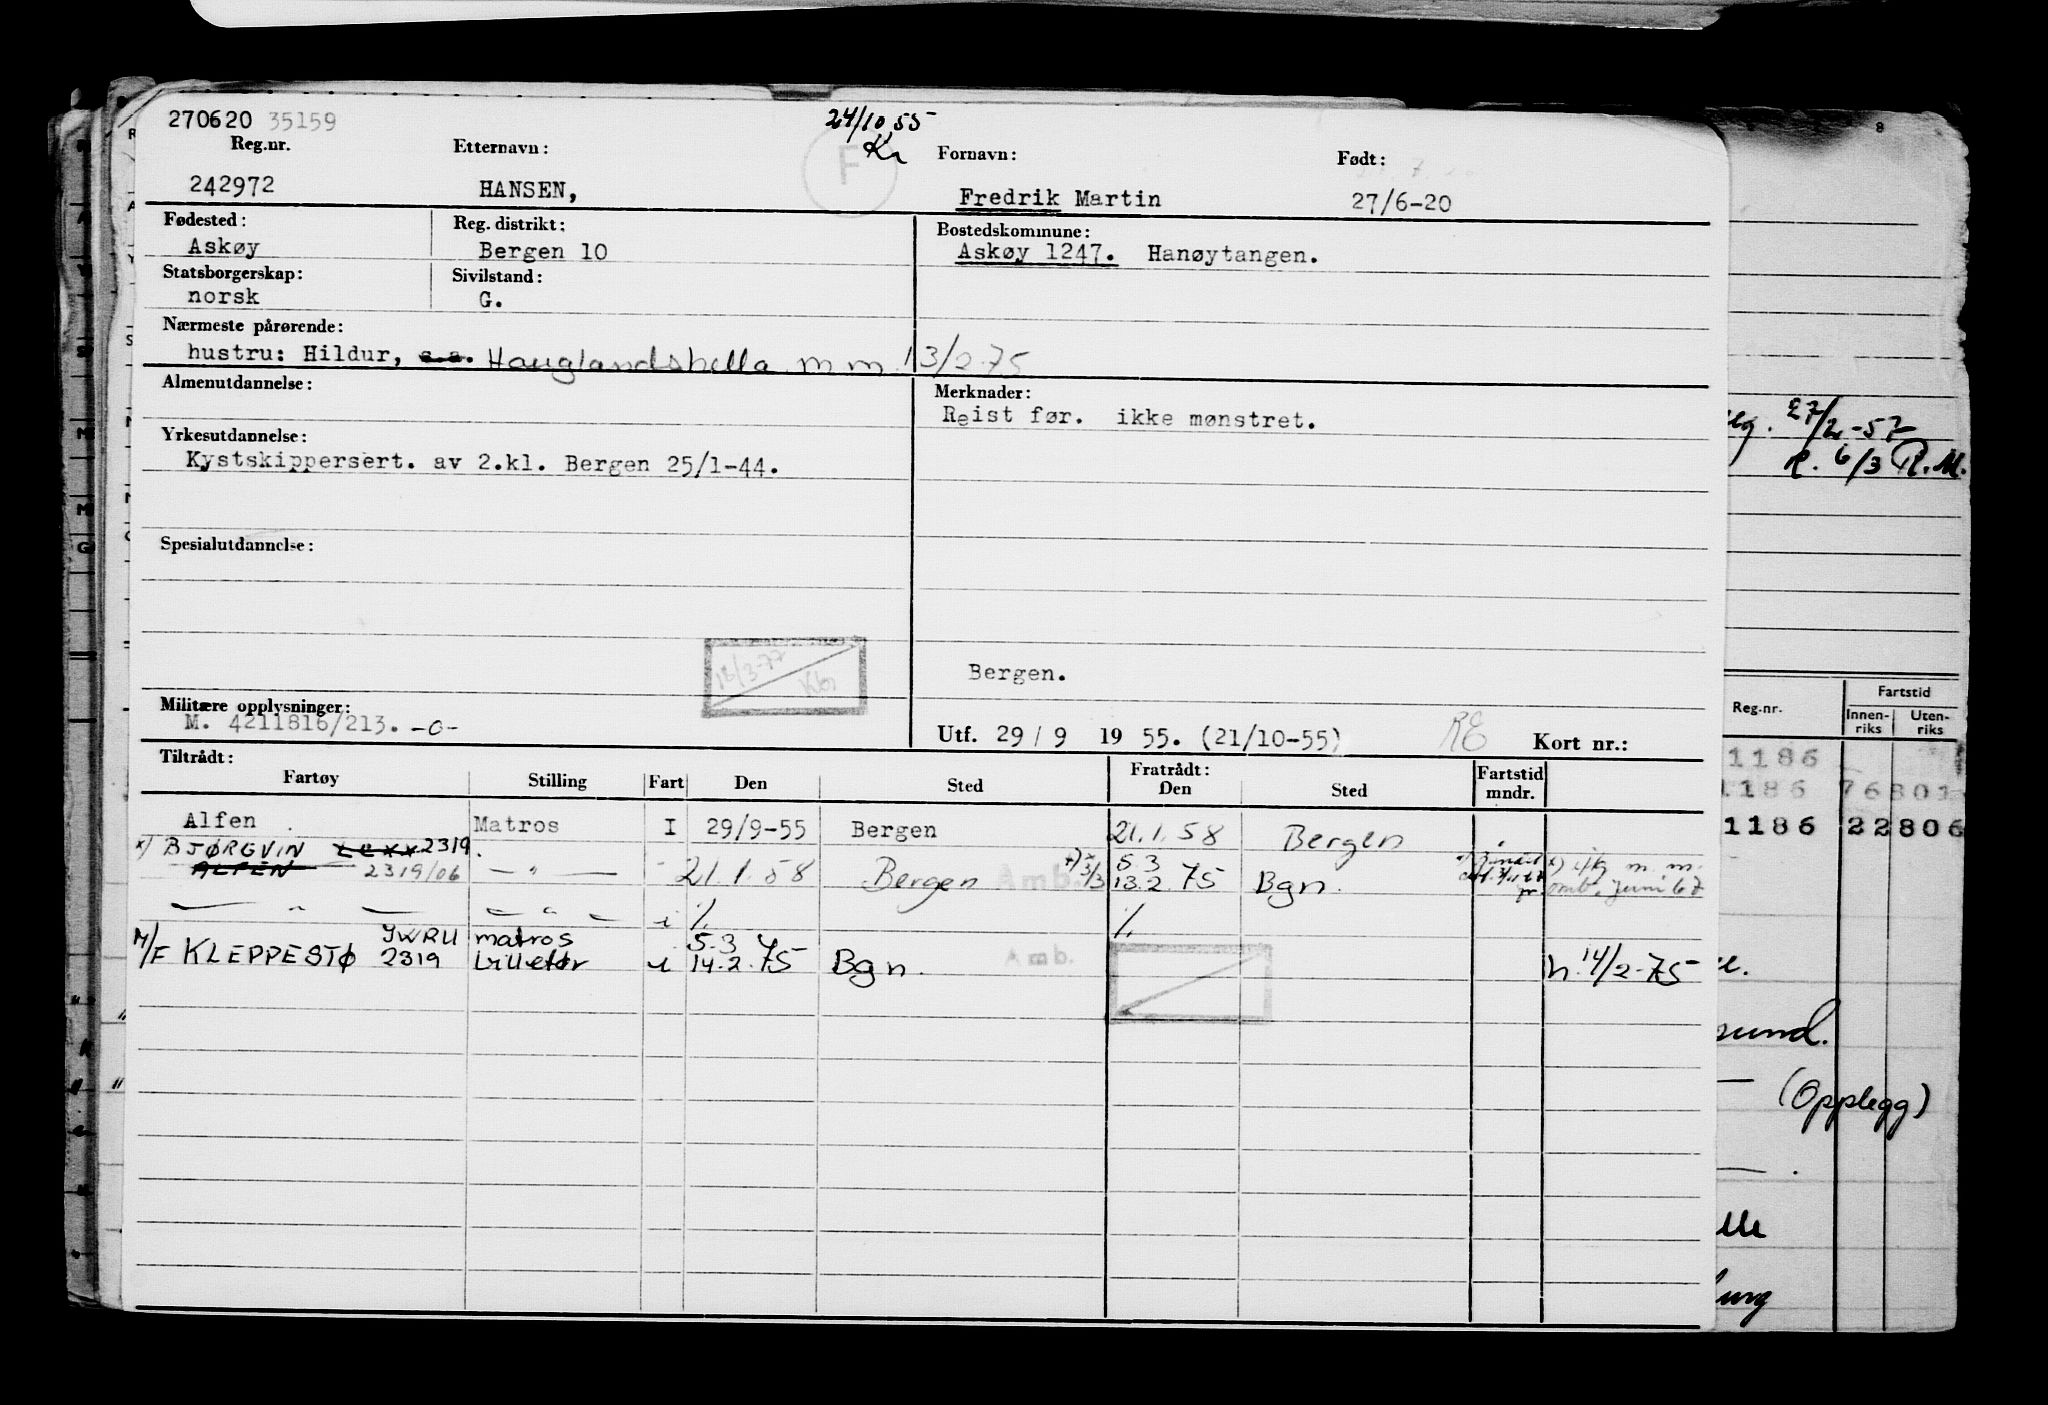 270620 35159
24/10 55
Kr
F
Reg.nr. Etternavn: Fornavn: Født:
242972 HANSEN, Fredrik Martin 27/6-20
Fødested: Reg. distrikt: Bostedskommune:
Askøy Bergen 10 Askøy 1247. Hanøytangen.
Statsborgerskap: Sivilstand:
norsk G.
Nærmeste pårørende:
hustru: Hildur, s.s. Hauglandshella m m 13/2-75
Almenutdannelse: Merknader:
Reist før. ikke mønstret.
Yrkesutdannelse:
Kystskippersert. av 2.kl. Bergen 25/1-44.
Spesialutdannelse:
18/3-77
Bergen.
Militære opplysninger:
M. 4211816/213. -o-
Utf. 29/9 1955. (21/10-55) RE Kort nr.:
Tiltrådt: Fratrådt:
Fartøy Stilling Fart Den Sted Den Sted Fartstid mndr.
Alfen Matros I 29/9-55 Bergen 21.1.58 Bergen
x) BJØRGVIN 2319.
ALFEN 2319/06 — " — 21.1.58 Bergen Amb. 3/3 5.3 13.2.75 Bgn. x) m. m. amb. juni 67
— " — — " — i % %
M/F KLEPPESTØ JWRU 2319 matros i 5.3 14.2.75 Bgn. Amb. h. 14/2-75
27/2-57
R. 6/3 R.M.
8
Fartstid
Reg.nr. Innenriks Utenriks
1186
1186 76801
1186 22806
sund.
(Opplegg)